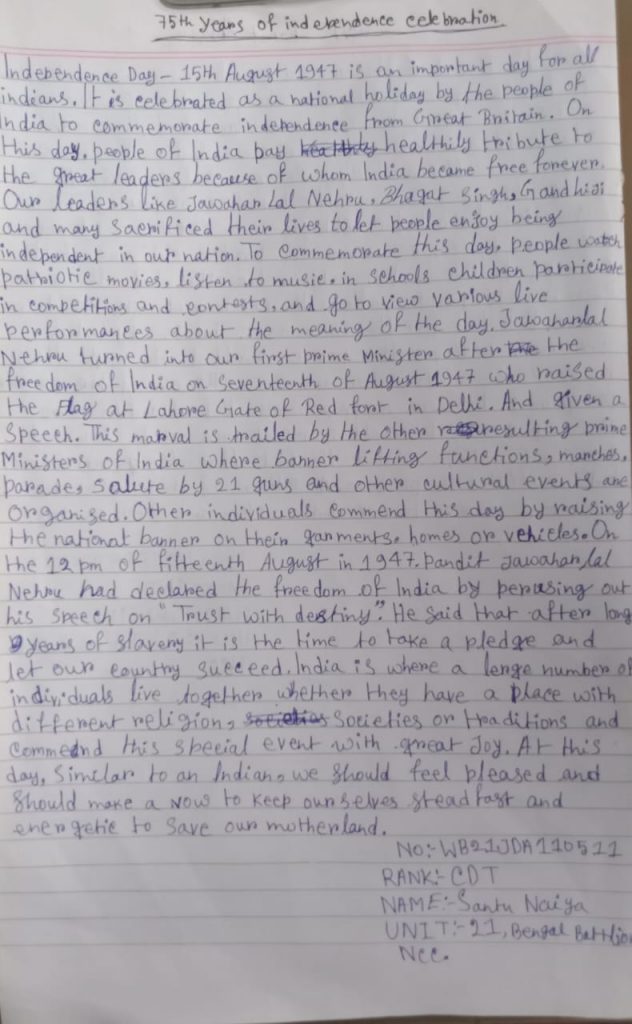 75th years of independence celebration
Independence Day - 15th August 1947 is an important day for all
indians. It is celebrated as a national holiday by the people of
India to commemorate independence from Great Britain. On
this day, people of India pay healthily tribute to
the great leaders because of whom India became free forever.
Our leaders like Jawahar Lal Nehru, Bhagat Singh, Gandhiji
and many sacrificed their lives to let people enjoy being
independent in our nation. To commemorate this day, people watch
patriotic movies, listen to music, in schools children participate
in competitions and contests, and go to view various live
performances about the meaning of the day. Jawaharlal
Nehru turned into our first prime Minister after the
freedom of India on seventeenth of August 1947 who raised
the Flag at Lahore Gate of Red fort in Delhi. And given a
speech. This marval is trailed by the other resulting prime
Ministers of India where banner lifting functions, marches,
parade, salute by 21 guns and other cultural events are
organized. Other individuals commend this day by raising
the national banner on their garments, homes or vehicles. On
the 12 pm of fifteenth August in 1947. Pandit Jawaharlal
Nehru had declared the freedom of India by perusing out
his speech on "Trust with destiny". He said that after long
years of slavery it is the time to take a pledge and
let our country succeed. India is where a lenge number of
individuals live together whether they have a place with
different religion, societies or traditions and
commednd this special event with great Joy. At this
day, Similar to an Indian, we should feel pleased and
should make a vow to keep ourselves steadfast and
energetic to save our motherland.
No:- WB21JDA110511
RANK:- CDT
NAME:- Santu Naiya
UNIT:- 21, Bengal Battlio
Ncc.